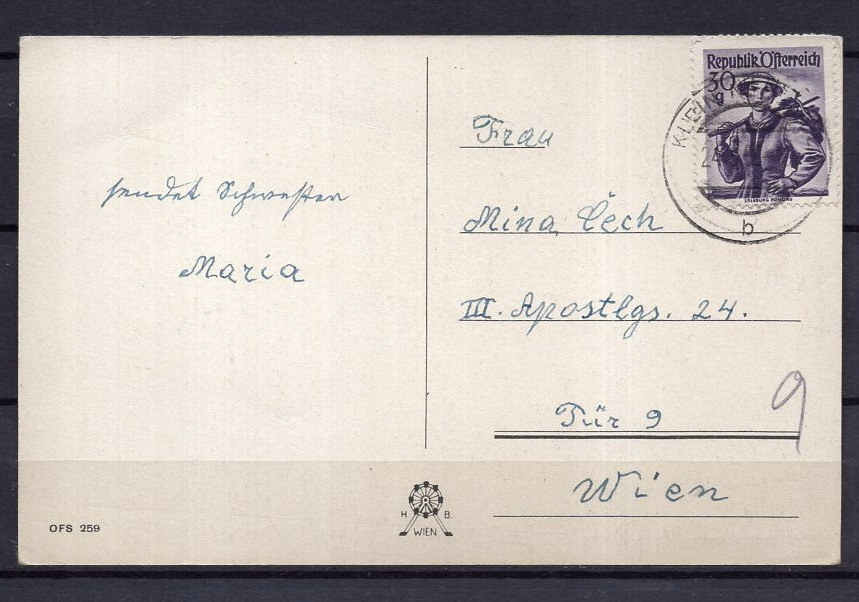 sendet Schwester
Maria
OFS 259
H B
WIEN
Republik Österreich
30
g
SALZBURG PONGAU
24
b
Frau
Mina Čech
III. Apostlgs. 24.
Tür 9
9
Wien